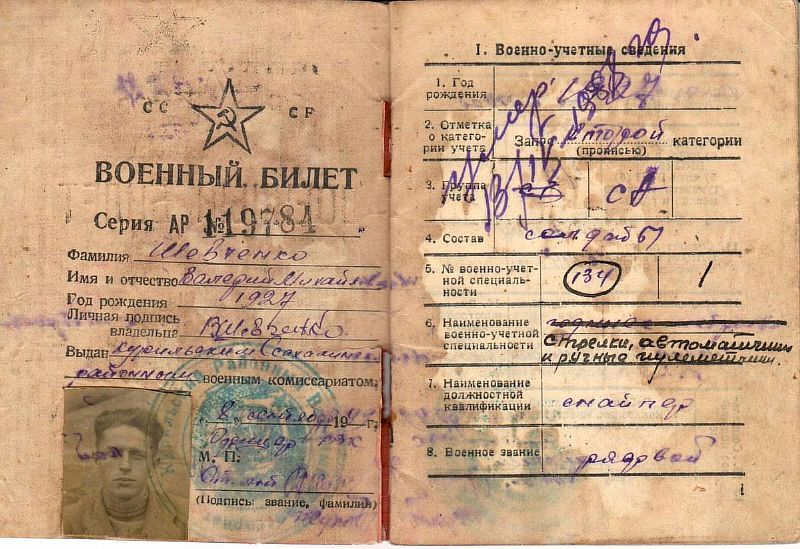 СС СР
ВОЕННЫЙ БИЛЕТ
Серия АР № 119784
Фамилия Шевченко
Имя и отчество Валерий Михайлов
Год рождения 1927
Личная подпись
владельца ВШевченко
Выдан Курильским Сахалинск
районным военным комиссариатом
сентября 19 г.
Офицер
М. П.
(Подпись, звание, фамилия)
I. Военно-учетные сведения
1. Год
рождения 1927
2. Отметка
о катего-
рии учета Запас второй категории
(прописью)
3. Группа
учета СА
4. Состав солдаты
5. № военно-учет-
ной специаль-
ности 134 1
6. Наименование
военно-учетной
специальности стрелки, автоматчики
и ручные пулеметчики
7. Наименование
должностной
квалификации снайпер
8. Военное звание рядовой
1